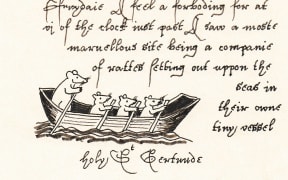 Fryydaie I feel a forboding for at
vi of the clock iust past I saw a moste
marvellous site being a companie
of rattes setting out uppon the
seas in
their owne
tiny vessel
holy St Gertrude